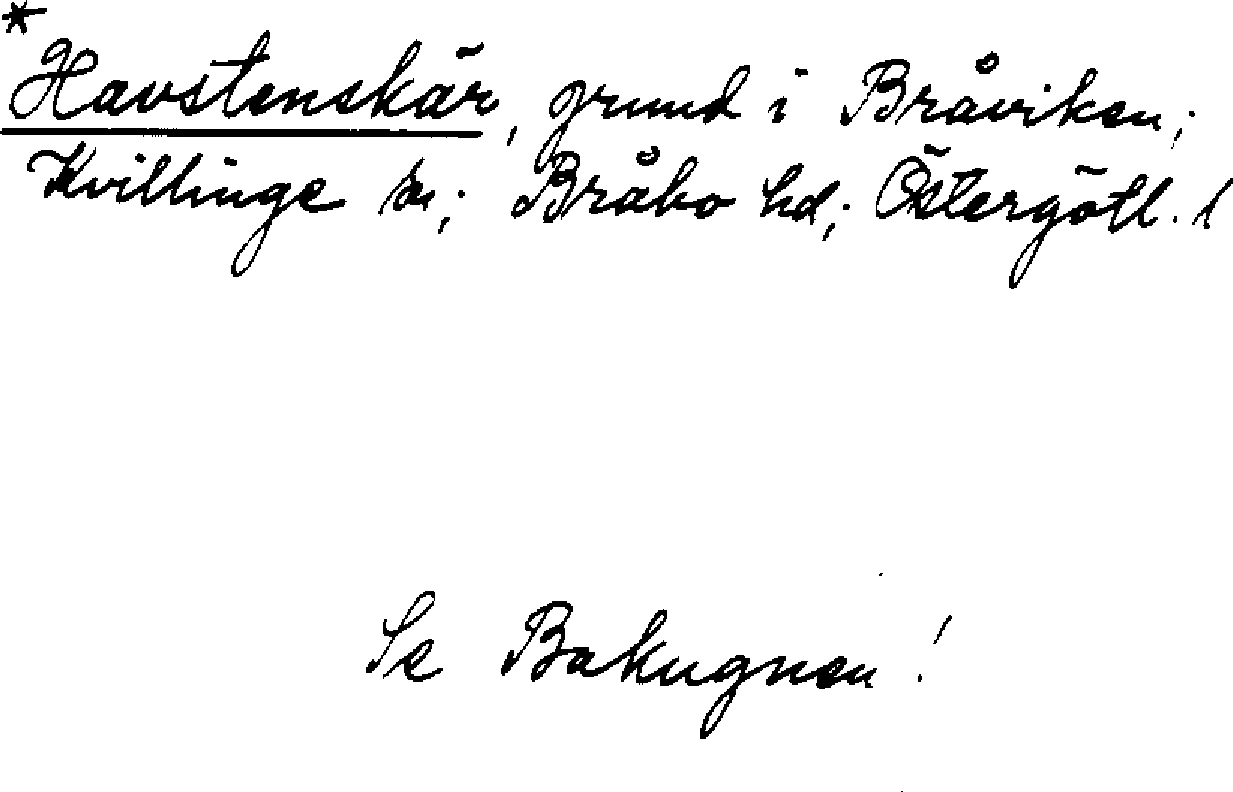 *
Havstenskär, grund i Bråviken;
Kvillinge sn; Bråbo hd; Östergötl. l
Se Bakugnen!